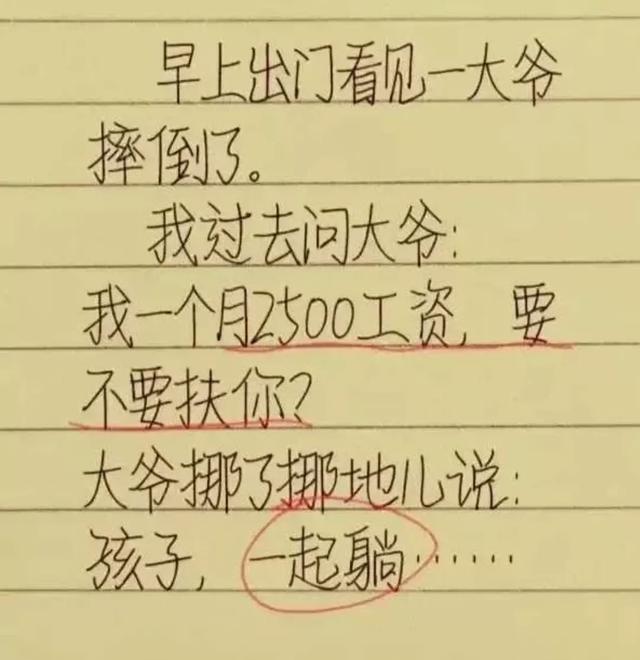 早上出门看见一大爷
摔倒了。
我过去问大爷:
我一个月2500工资,要
不要扶你?
大爷挪了挪地儿说:
孩子,一起躺……